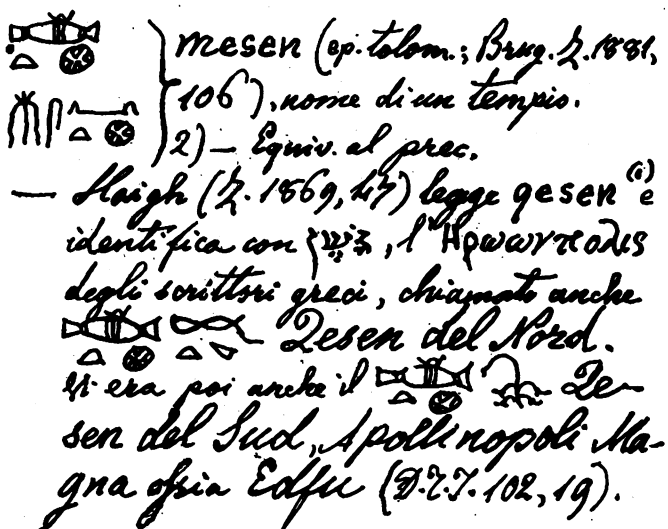 mesen (ep. tolom.; Brug. Z. 1881,
106), nome di un tempio.
2) — Equiv. al prec.
— Haigh (Z. 1869, 47) legge qesen (i) e
identifica con גשן, l'Ηρωωνπολις
degli scrittori greci, chiamato anche
Qesen del Nord.
Vi era poi anche il Qe-
sen del Sud, Apollinopoli Ma-
gna ossia Edfu (D.T.I. 102, 19).